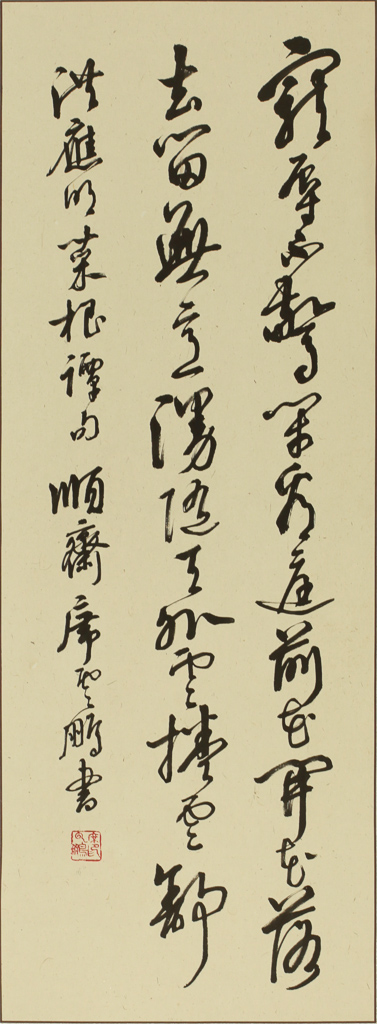 寵辱不驚閑看庭前花開花落
去留無意漫隨天外雲捲雲舒
洪應明菜根譚句 順齋席雲鵬書